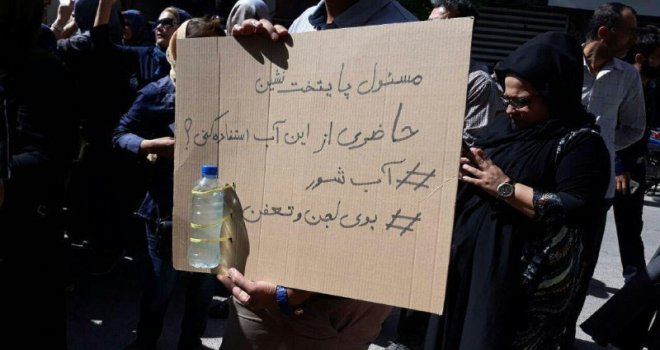 مسئول پایتخت نشین
حاضری از این آب استفاده کنی؟
#آب شور
#بوی لجن و تعفن